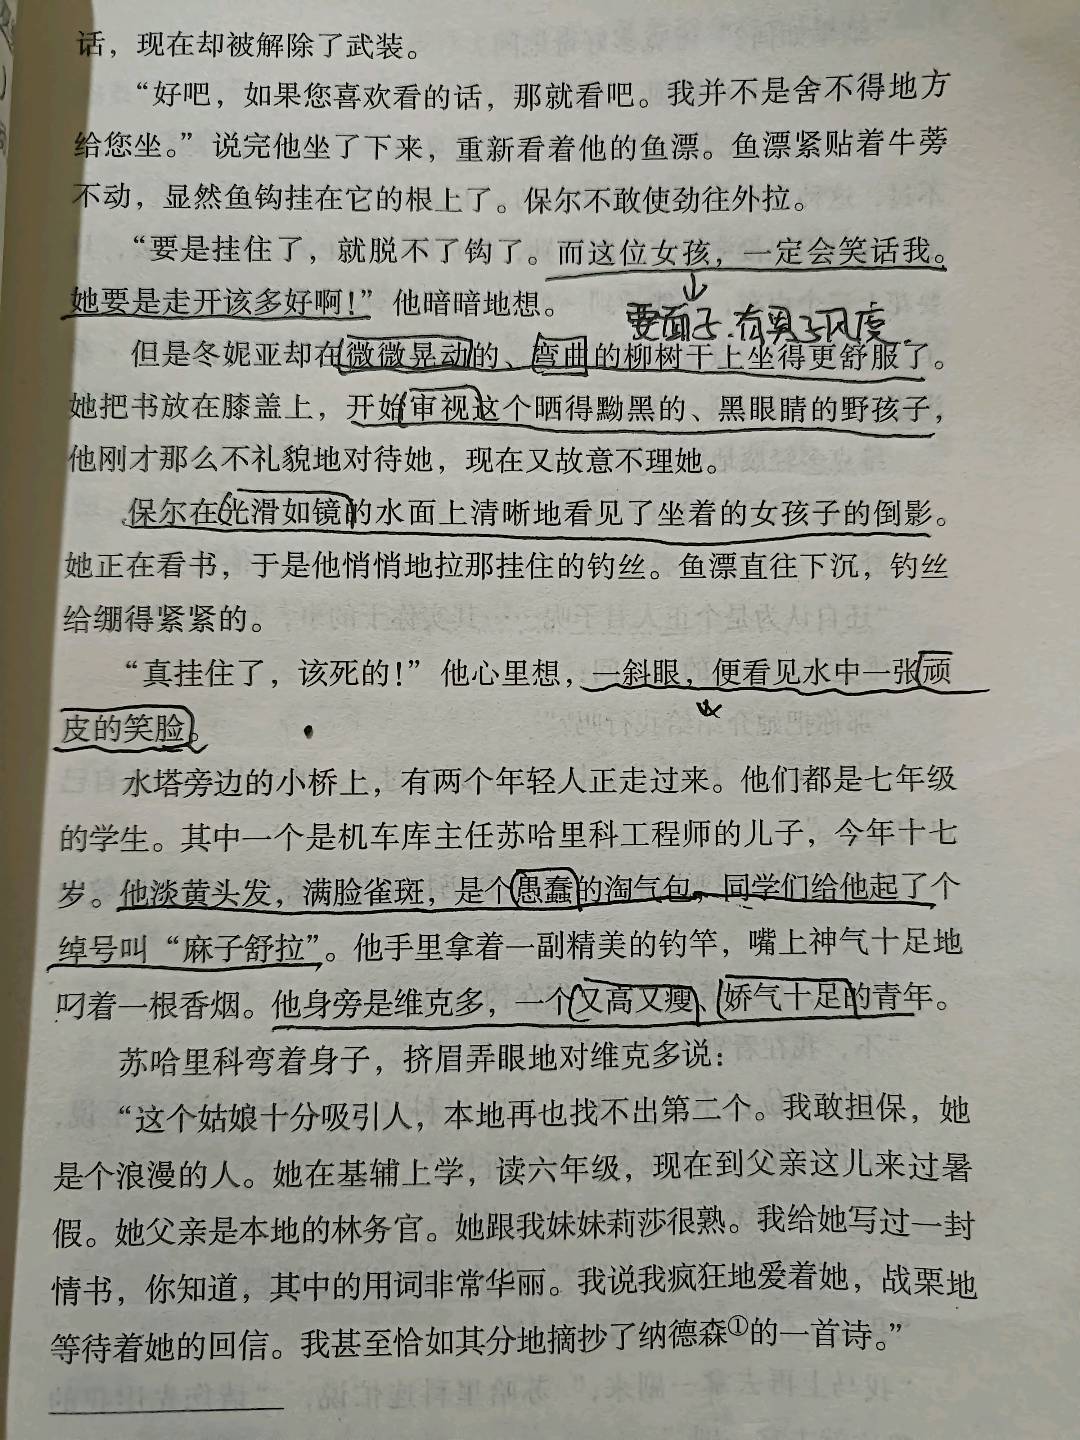 话，现在却被解除了武装。
“好吧，如果您喜欢看的话，那就看吧。我并不是舍不得地方
给您坐。”说完他坐了下来，重新看着他的鱼漂。鱼漂紧贴着牛蒡
不动，显然鱼钩挂在它的根上了。保尔不敢使劲往外拉。
“要是挂住了，就脱不了钩了。而这位女孩，一定会笑话我。
她要是走开该多好啊！”他暗暗地想。
要面子.有男子风度.
但是冬妮亚却在微微晃动的、弯曲的柳树干上坐得更舒服了。
她把书放在膝盖上，开始审视这个晒得黝黑的、黑眼睛的野孩子，
他刚才那么不礼貌地对待她，现在又故意不理她。
保尔在光滑如镜的水面上清晰地看见了坐着的女孩子的倒影。
她正在看书，于是他悄悄地拉那挂住的钓丝。鱼漂直往下沉，钓丝
给绷得紧紧的。
“真挂住了，该死的！”他心里想，一斜眼，便看见水中一张顽
皮的笑脸。
水塔旁边的小桥上，有两个年轻人正走过来。他们都是七年级
的学生。其中一个是机车库主任苏哈里科工程师的儿子，今年十七
岁。他淡黄头发，满脸雀斑，是个愚蠢的淘气包，同学们给他起了个
绰号叫“麻子舒拉”。他手里拿着一副精美的钓竿，嘴上神气十足地
叼着一根香烟。他身旁是维克多，一个又高又瘦、娇气十足的青年。
苏哈里科弯着身子，挤眉弄眼地对维克多说：
“这个姑娘十分吸引人，本地再也找不出第二个。我敢担保，她
是个浪漫的人。她在基辅上学，读六年级，现在到父亲这儿来过暑
假。她父亲是本地的林务官。她跟我妹妹莉莎很熟。我给她写过一封
情书，你知道，其中的用词非常华丽。我说我疯狂地爱着她，战栗地
等待着她的回信。我甚至恰如其分地摘抄了纳德森①的一首诗。”